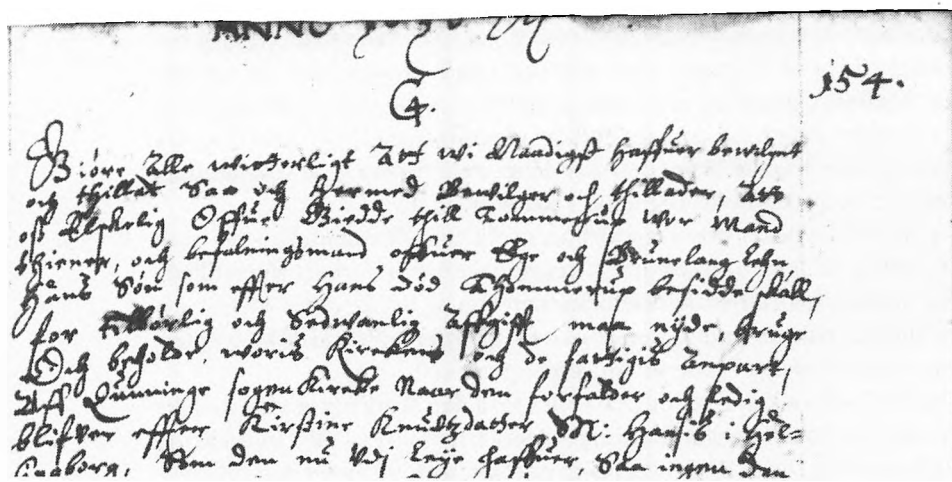 ANNO
154.
C4.
Giøre Alle witterligt Att wi Naadigst haffuer bewilget
och thillat Saa och hermed Bewilger och thillader, Att
oss Elskelig Offue Giedde thill Tommerup wor Mand
thiener, och befalningsmand offuer Ege och Brunelang lehn
Hans Søn som effter Hans død Thommerup besidde skall,
for tilbørlig och Sedwanlig Affgifft maa nyde, bruge
Och beholde, woris Kirckens och de fattigis Anpart,
Aff sogen Kircke Naar den forfalder och ledig
blifver effter Kirstine Knudtzdatter Sl: Hansis i Hel-
singborg, Som den nu Udj Leye haffuer, Saa ingen den